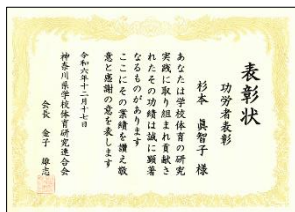 表彰状
功労者表彰
杉本 眞智子 様
あなたは学校体育の研究
実践に取り組まれ貢献さ
れたその功績は誠に顕著
なるものがあります
ここにその業績を讃え敬
意と感謝の意を表します
令和六年十二月十七日
神奈川県学校体育研究連合会
会長 金子 雄志